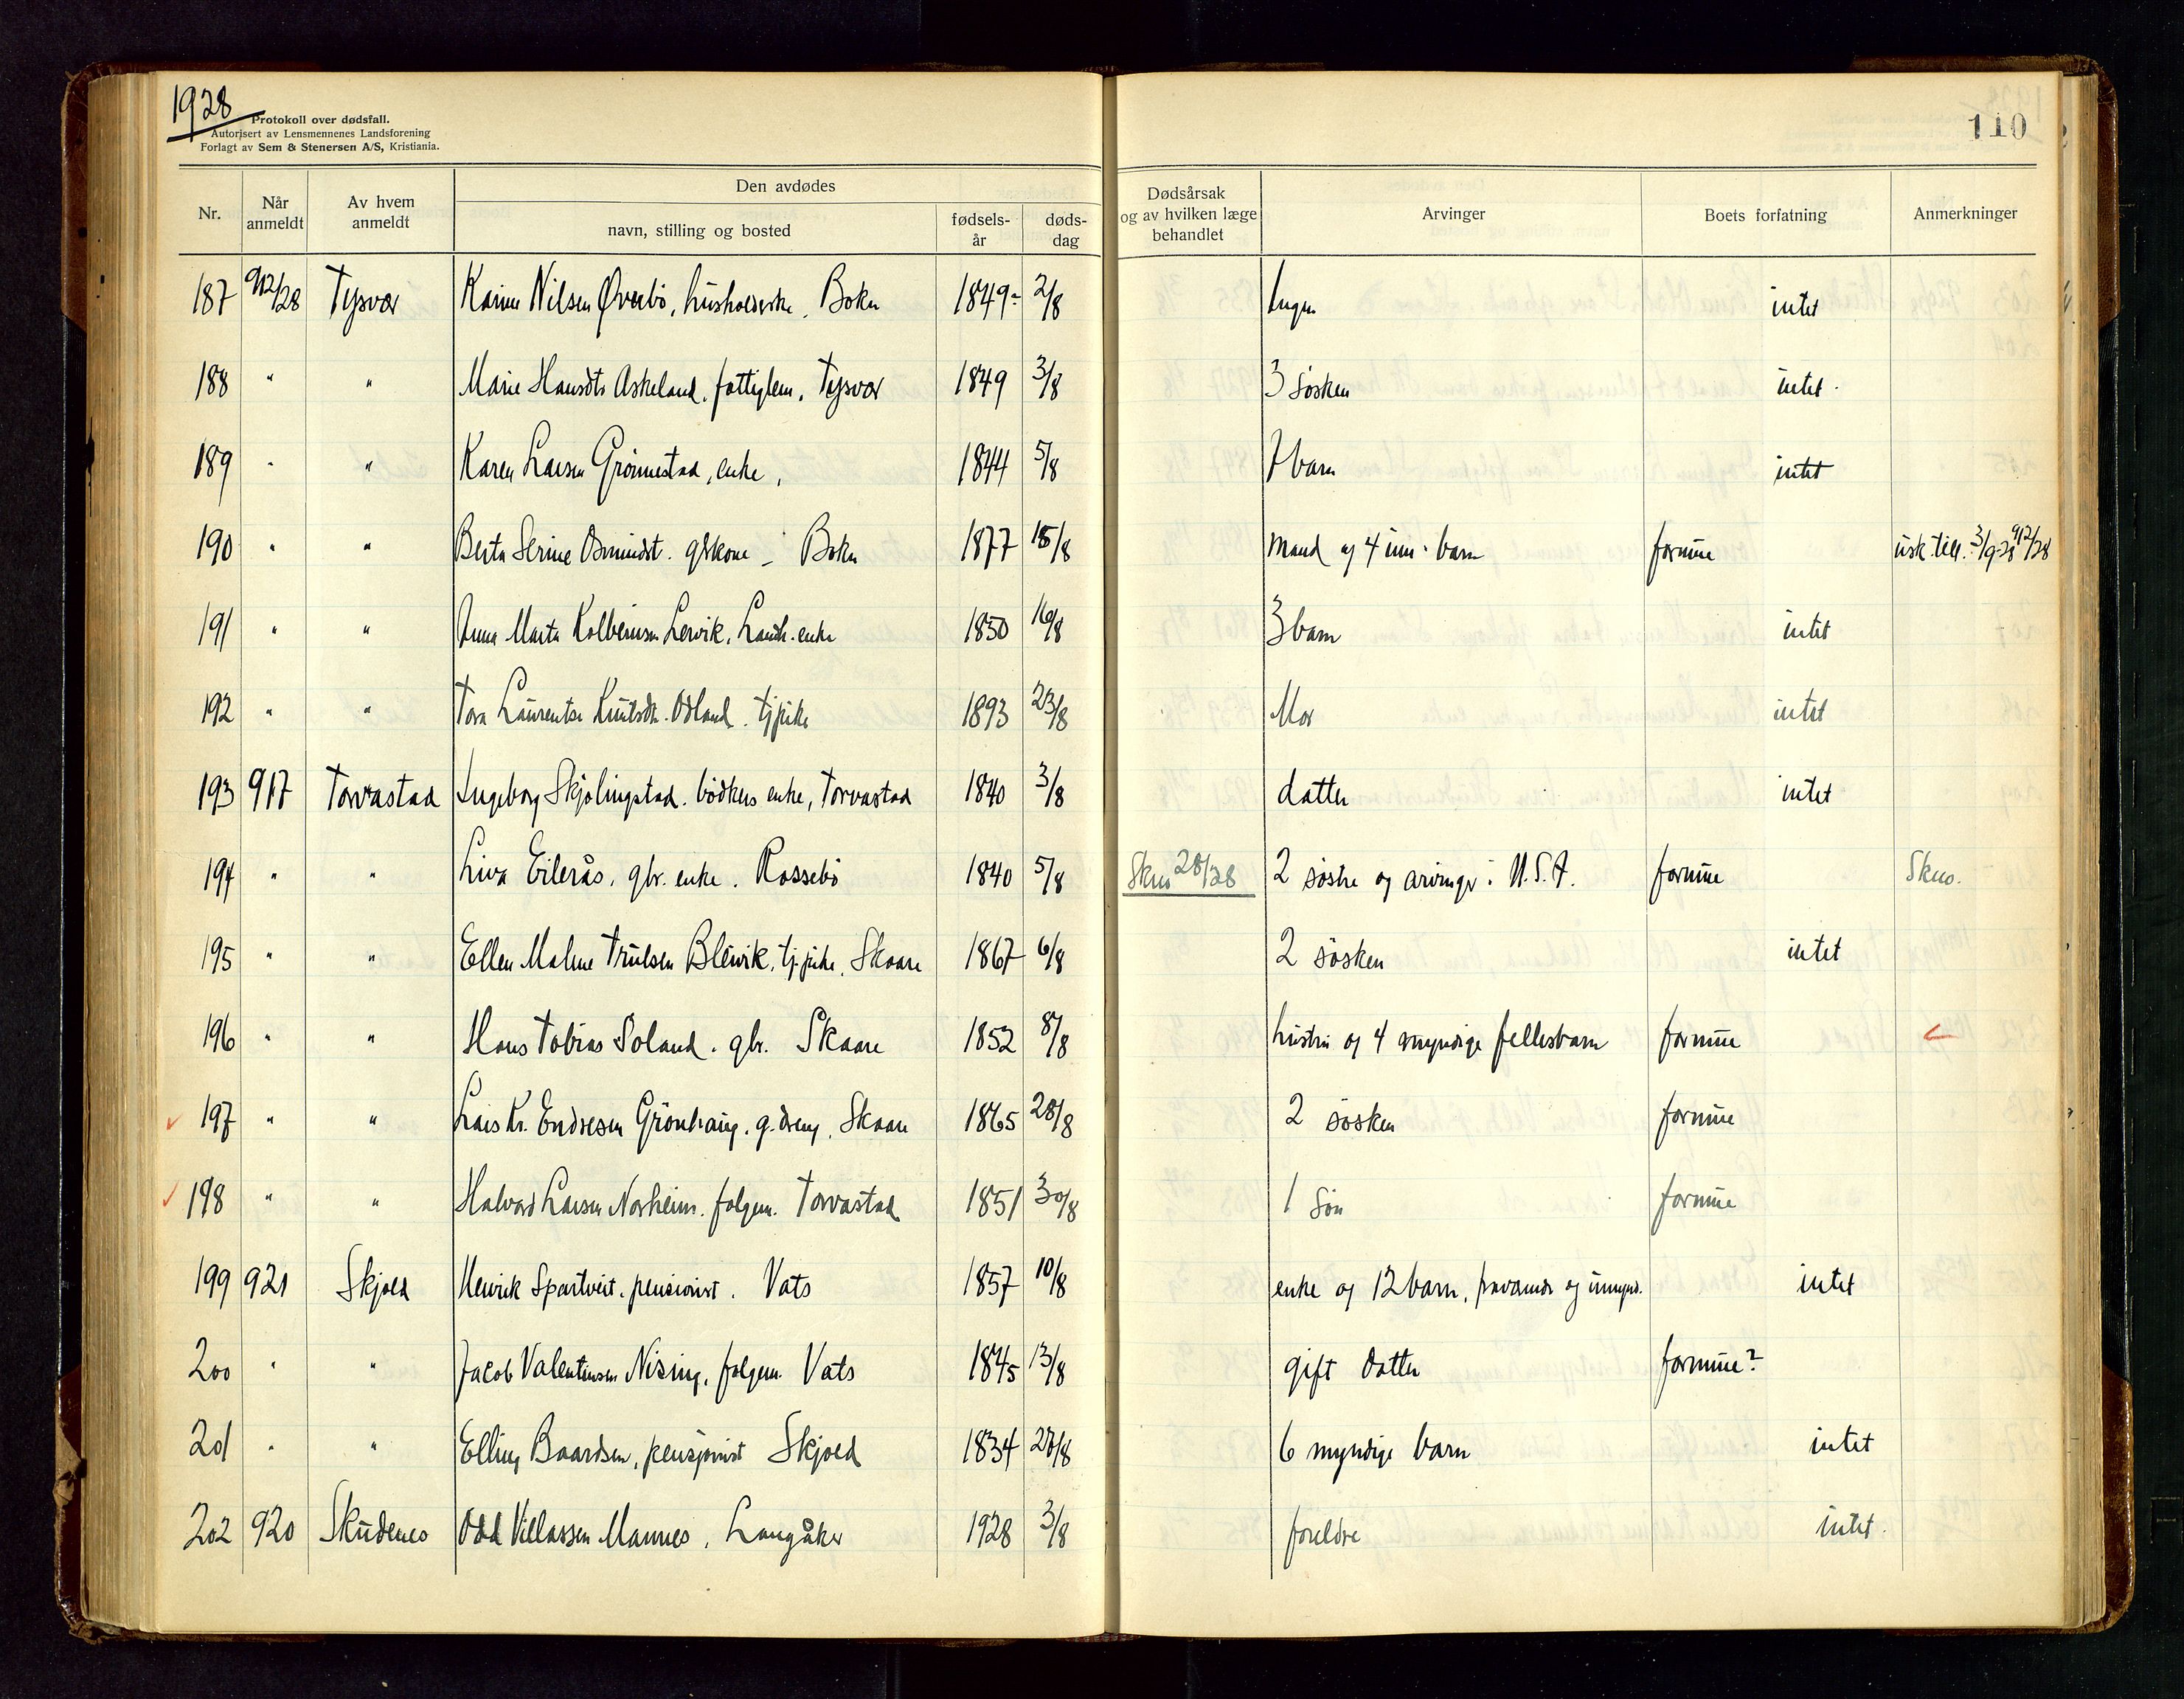 1928
Protokoll over dødsfall.
Autorisert av Lensmennenes Landsforening
Forlagt av Sem & Stenersen A/S, Kristiania.
110
Nr. Når anmeldt Av hvem anmeldt Den avdødes navn, stilling og bosted fødsels-år døds-dag Dødsårsak og av hvilken læge behandlet Arvinger Boets forfatning Anmerkninger
187 912/28 Tysvær Karine Nilsen Øverbö, Boken 1849 2/8 Ingen intet
188 " " Marie Hansdtr Askeland, fattiglem, Tysvær 1849 3/8 3 søsken intet
189 " " Karen Larsen Grønnestad, enke, 1844 5/8 7 barn intet
190 " " Berta Serine gbrkone - Bokn 1877 15/8 Mand og 4 um. barn formue 3/9-28 912/28
191 " " Anna Marta Kolbeinsen Lervik, enke 1850 16/8 3 barn intet
192 " " Tora Laurentse Odland. tjpike 1893 23/8 Mor intet
193 917 Torvastad Ingeborg Skjølingstad. bødkers enke, Torvastad 1840 3/8 datter intet
194 " " Liva Eilerås, gbr. enke. Rossebö 1840 5/8 28/28 2 søstre og arvinger i U.S.A. formue
195 " " Ellen Malene Trulsen tj.pike, Skaare 1867 6/8 2 søsken intet
196 " " Hans Tobias Soland. gbr. Skaare 1852 8/8 hustru og 4 myndige fellesbarn formue
197 " " Lars Kr. Endresen Grönhaug. g.dreng, Skaare 1865 28/8 2 søsken formue
198 " " Halvard Larsen Norheim. folgem. Torvastad 1851 30/8 1 søn formue
199 921 Skjold Henrik pensionist. Vats 1857 10/8 enke og 12 barn, og umynd. intet
200 " " Jacob Valentinsen folgem. Vats 1845 13/8 gift datter formue?
201 " " Elling Baardsen, pensjonist Skjold 1834 6 myndige barn intet
202 920 Skudenes Odd Villassen Mannes, Langåker 1928 3/8 foreldre intet.